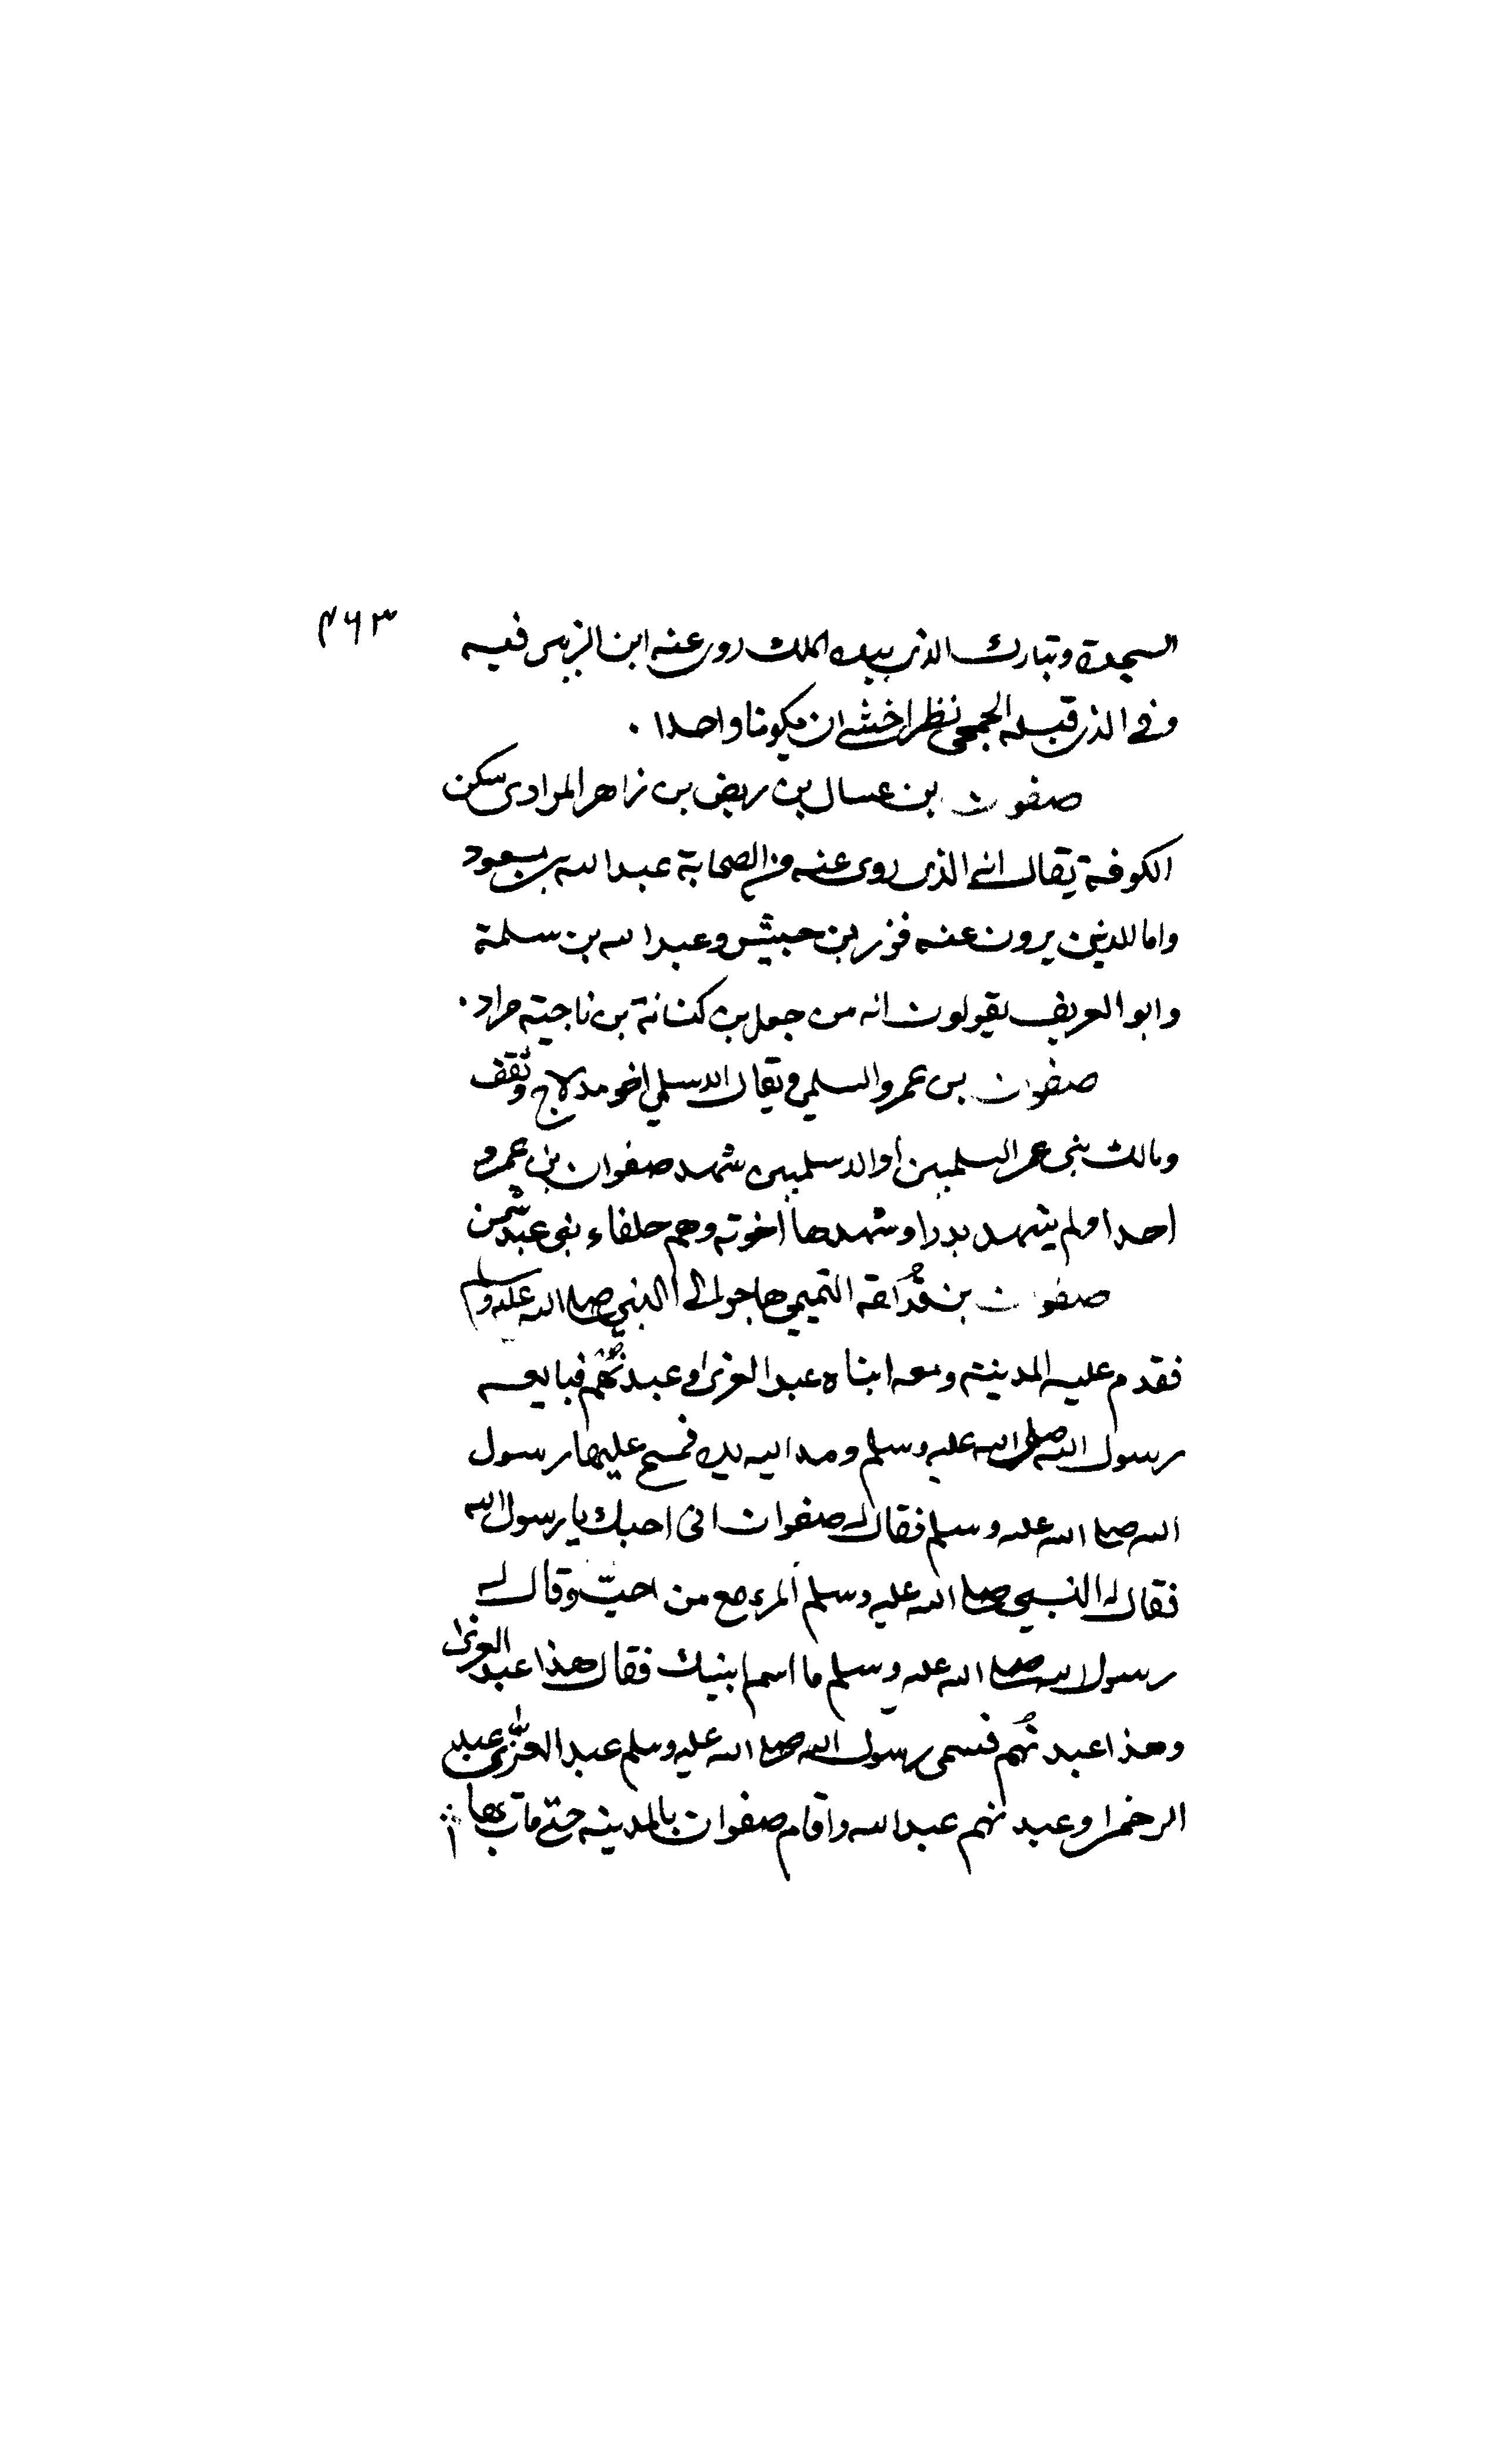 ٤٦٣
السجدة وتبارك الذى بيده الملك روى عنه ابن الزبير فيه
وفي الذى قبله الجمحى نظر اخشى ان يكونا واحدا .
صفوان بن عسال بن ربض بن زاهر المرادى سكن
الكوفة يقال انه الذى روى عنه من الصحابة عبد الله بن مسعود
واما الذين يرون عنه فزر بن حبيش وعبد الله بن سلمة
وابو العريف يقولون انه من جمل بن كنانة بن ناجية مراد .
صفوان بن عمرو السلمي ويقال الاسلمي اخو مدلاج وثقف
ومالك بنى عمر السلميين او الاسلميين شهد صفوان بن عمرو
احدا ولم يشهد بدرا وشهدها اخوته وهم حلفاء بنى عبد شمس
صفوان بن قُدَامة التميمي هاجر الى النبي صلى الله عليه وسلم
فقدم عليه المدينة ومعه ابناه عبد العزى وعبد نُهم فبايعه
رسول الله صلى الله عليه وسلم ومد اليه يده فمسح عليها رسول
الله صلى الله عليه وسلم فقال له صفوان انى احبك يا رسول الله
فقال له النبي صلى الله عليه وسلم المرء مع من احبّ وقال له
رسول الله صلى الله عليه وسلم ما اسم ابنيك فقال هذا عبد العزى
وهذا عبد نُهم فسمى رسول الله صلى الله عليه وسلم عبد العزّى عبد
الرحمن وعبد نهم عبد الله واقام صفوان بالمدينه حتى مات بها